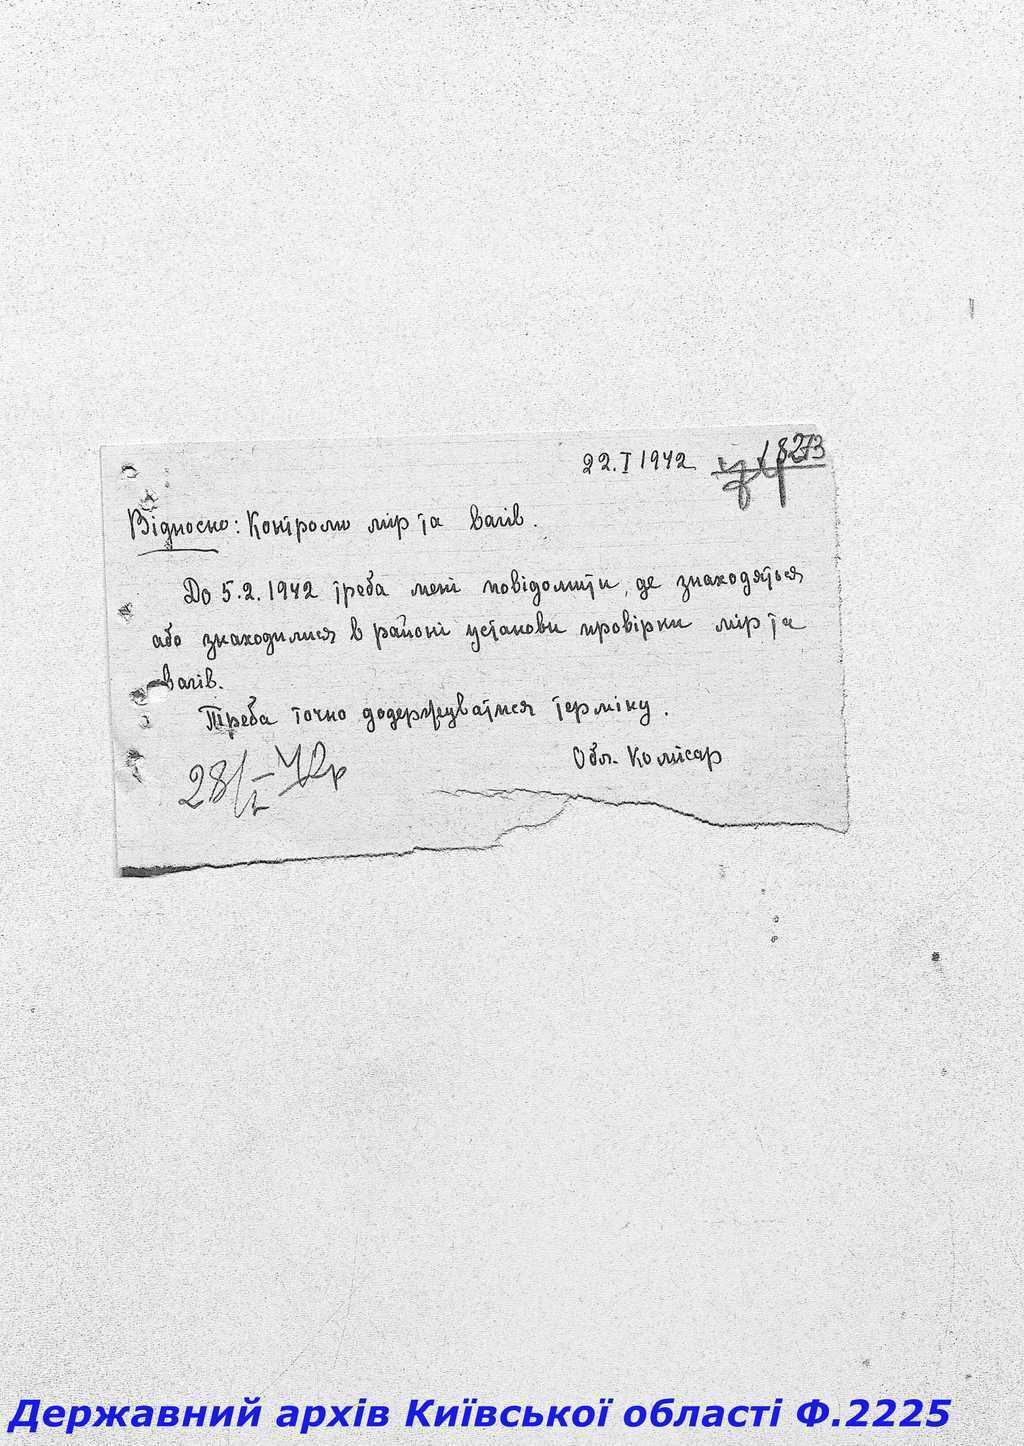 22.I 1942 273
Відносно: Контролю мір та вагів.
До 5.2.1942 треба мені повідомити, де знаходяться
або знаходилися в районі установи провірки мір та
вагів.
Треба точно додержуватися терміну.
Обл. Комісар
28/I 42р
Державний архів Київської області Ф.2225